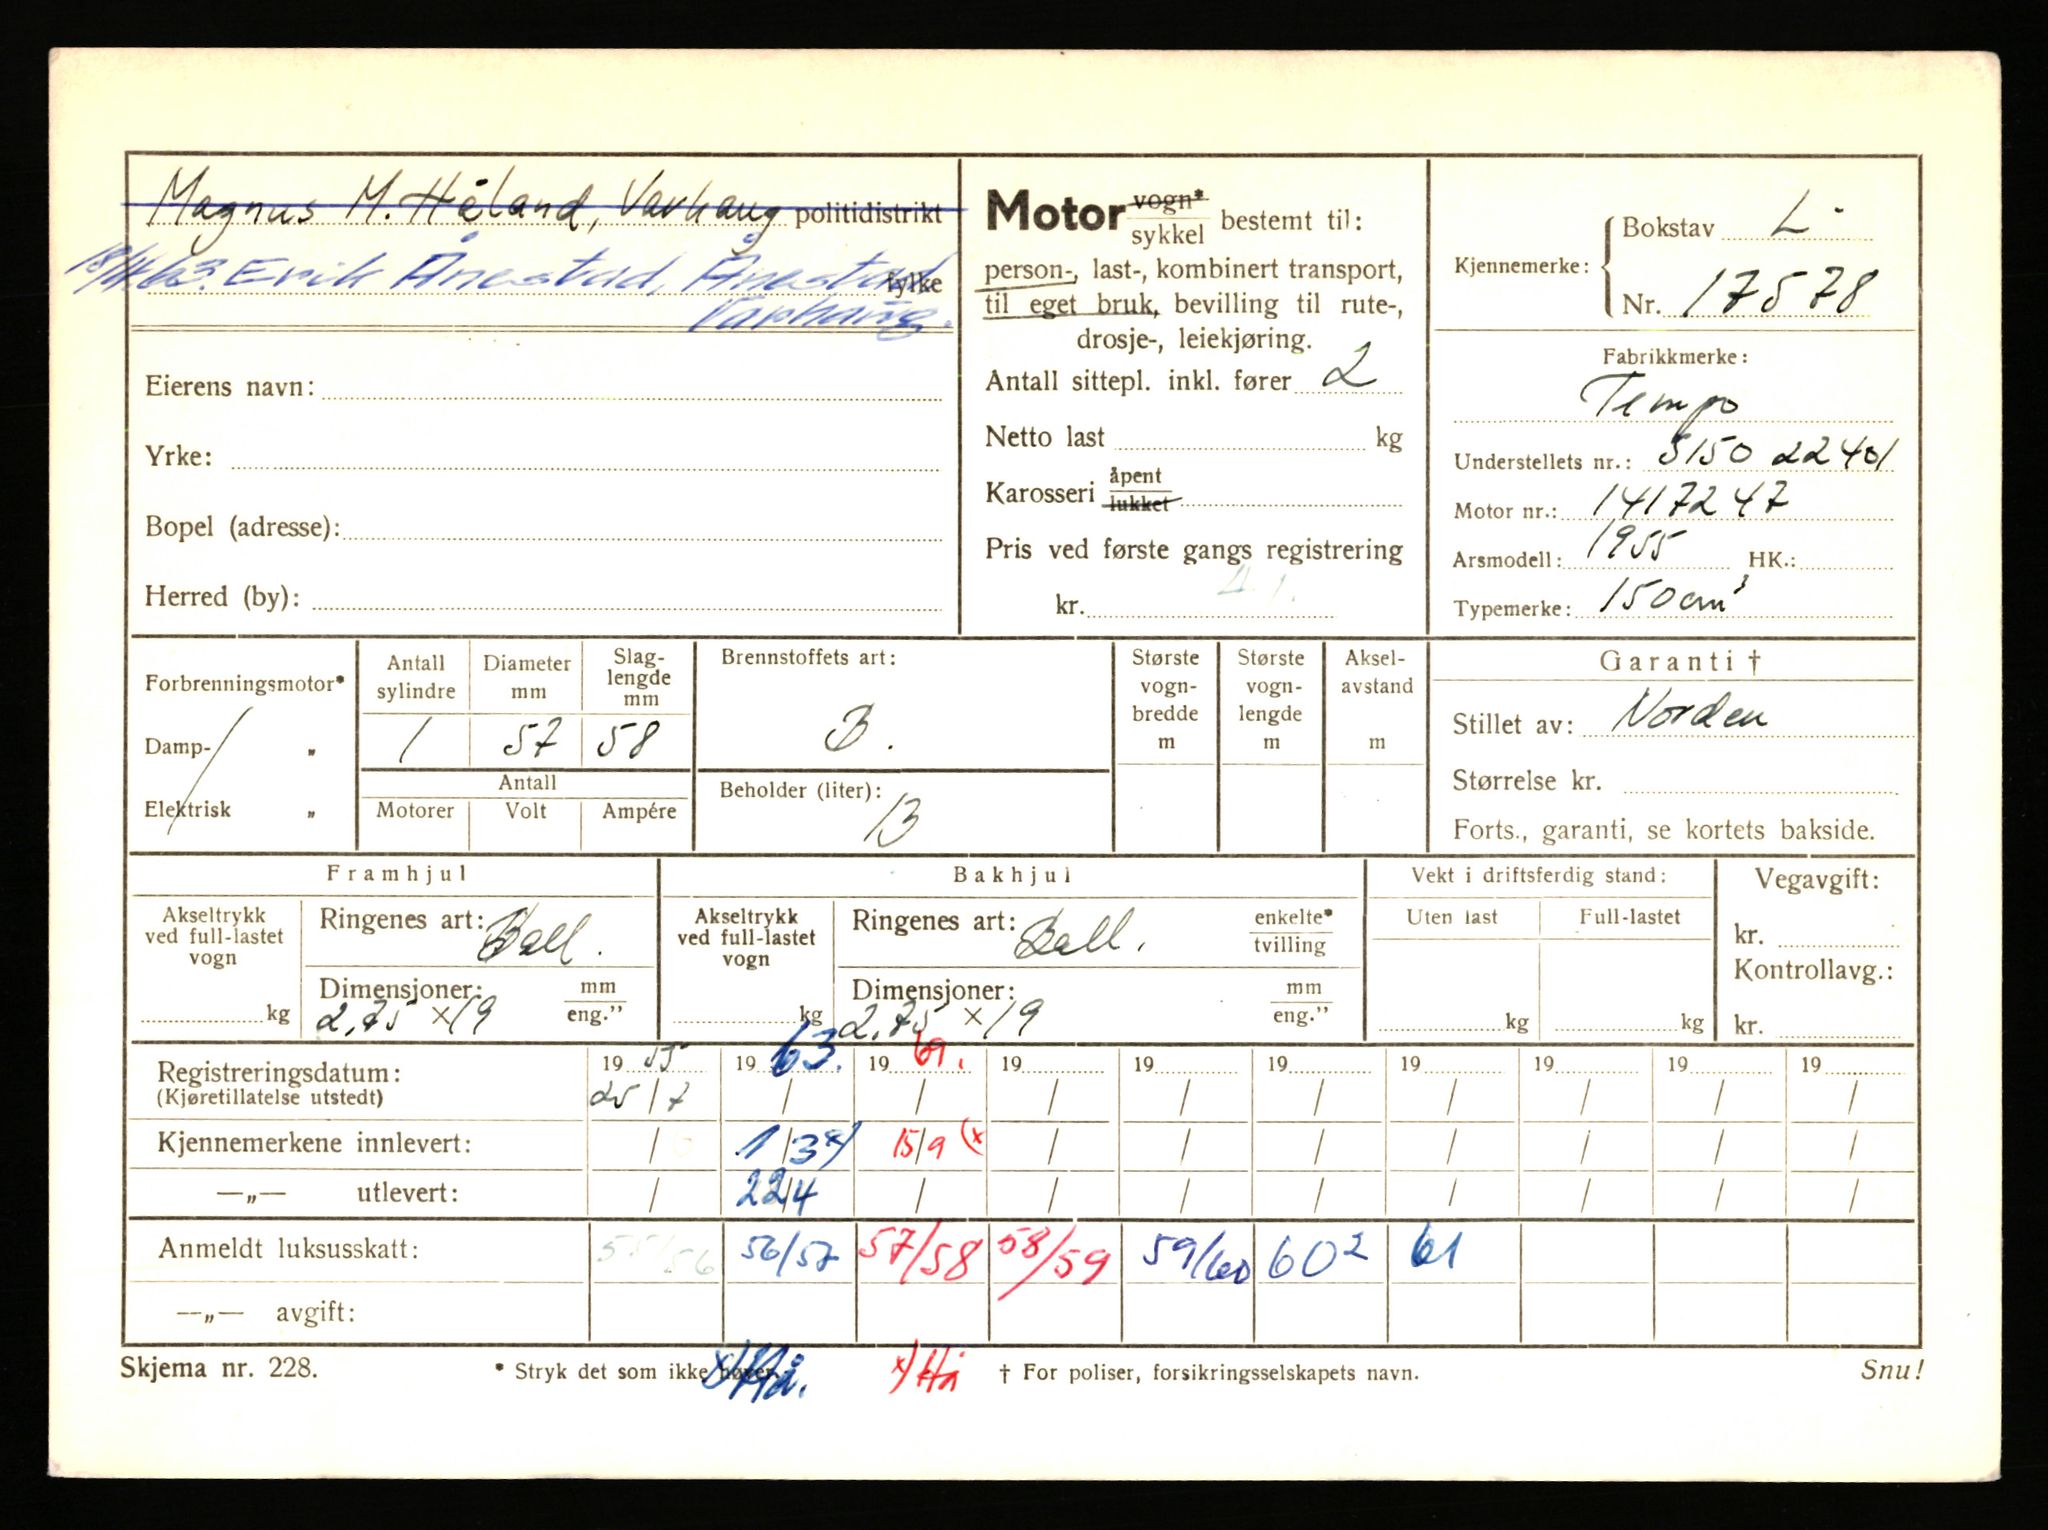 Magnus M. Håland, Varhaug politidistrikt
18/4.63. Erik Ånestad, Ånestad fylke
Varhaug.
Eierens navn:
Yrke:
Bopel (adresse):
Herred (by):
Motor vogn* sykkel bestemt til:
person-, last-, kombinert transport,
til eget bruk, bevilling til rute-,
drosje-, leiekjøring.
Antall sittepl. inkl. fører 2
Netto last kg
Karosseri åpent lukket
Pris ved første gangs registrering
kr.
Kjennemerke: Bokstav L.
Nr. 17578
Fabrikkmerke:
Tempo
Understellets nr.: 5150 22401
Motor nr.: 1417247
Arsmodell: 1955 HK.:
Typemerke: 150 cm³
Forbrenningsmotor*
Damp- „
Elektrisk „
Antall sylindre
Diameter mm
Slag-lengde mm
1 57 58
Antall
Motorer Volt Ampére
Brennstoffets art:
B.
Beholder (liter):
13
Største vogn-bredde m
Største vogn-lengde m
Aksel-avstand m
Garanti †
Stillet av: Norden
Størrelse kr.
Forts., garanti, se kortets bakside.
Framhjul
Akseltrykk ved full-lastet vogn
kg
Ringenes art: Ball.
Dimensjoner: mm eng.”
2,75 x 19
Bakhjul
Akseltrykk ved full-lastet vogn
kg
Ringenes art: Ball. enkelte* tvilling
Dimensjoner: mm eng.”
2,75 x 19
Vekt i driftsferdig stand:
Uten last Full-lastet
kg kg
Vegavgift:
kr.
Kontrollavg.:
kr.
Registreringsdatum: 19 55 19 63. 19 61. 19 19 19 19 19 19 19
(Kjøretillatelse utstedt) 25/7 / / / / / / / / /
Kjennemerkene innlevert: / 1/3 x) 15/9 (x / / / / / / /
—„— utlevert: / 22/4 / / / / / / / /
Anmeldt luksusskatt: 55/56 56/57 57/58 58/59 59/60 60² 61
—„— avgift:
Skjema nr. 228. * Stryk det som ikke høver. x) Hå. x) Hå † For poliser, forsikringsselskapets navn. Snu!